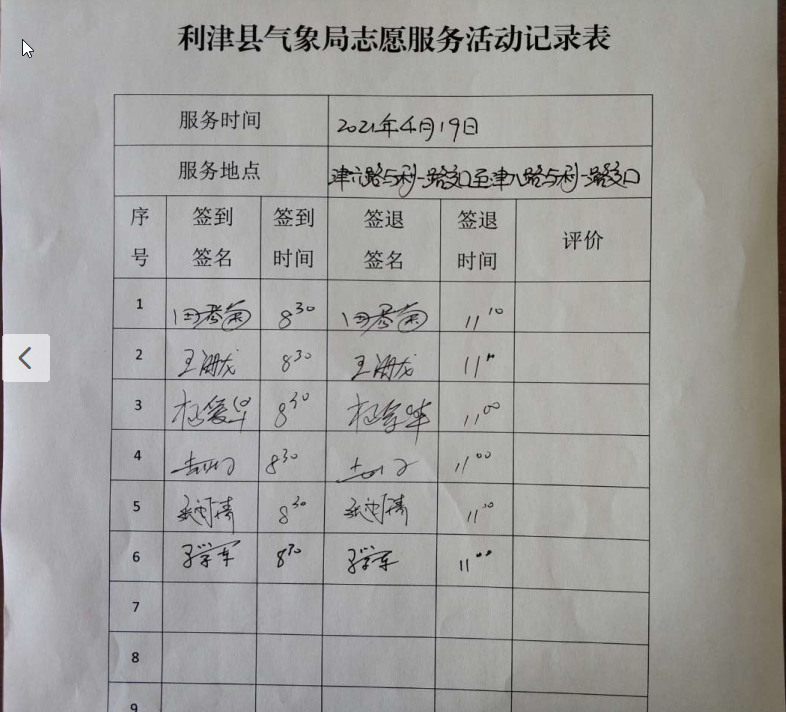 利津县气象局志愿服务活动记录表
服务时间 2021年4月19日
服务地点 津六路与利一路交口至津八路与利一路交口
序号 签到签名 签到时间 签退签名 签退时间 评价
1 田秀菊 8 30 田秀菊 11 10
2 8 30 11
3 8 30 11 00
4 8 30 11 00
5 8 30 11 10
6 8 30 11 00
7
8
9